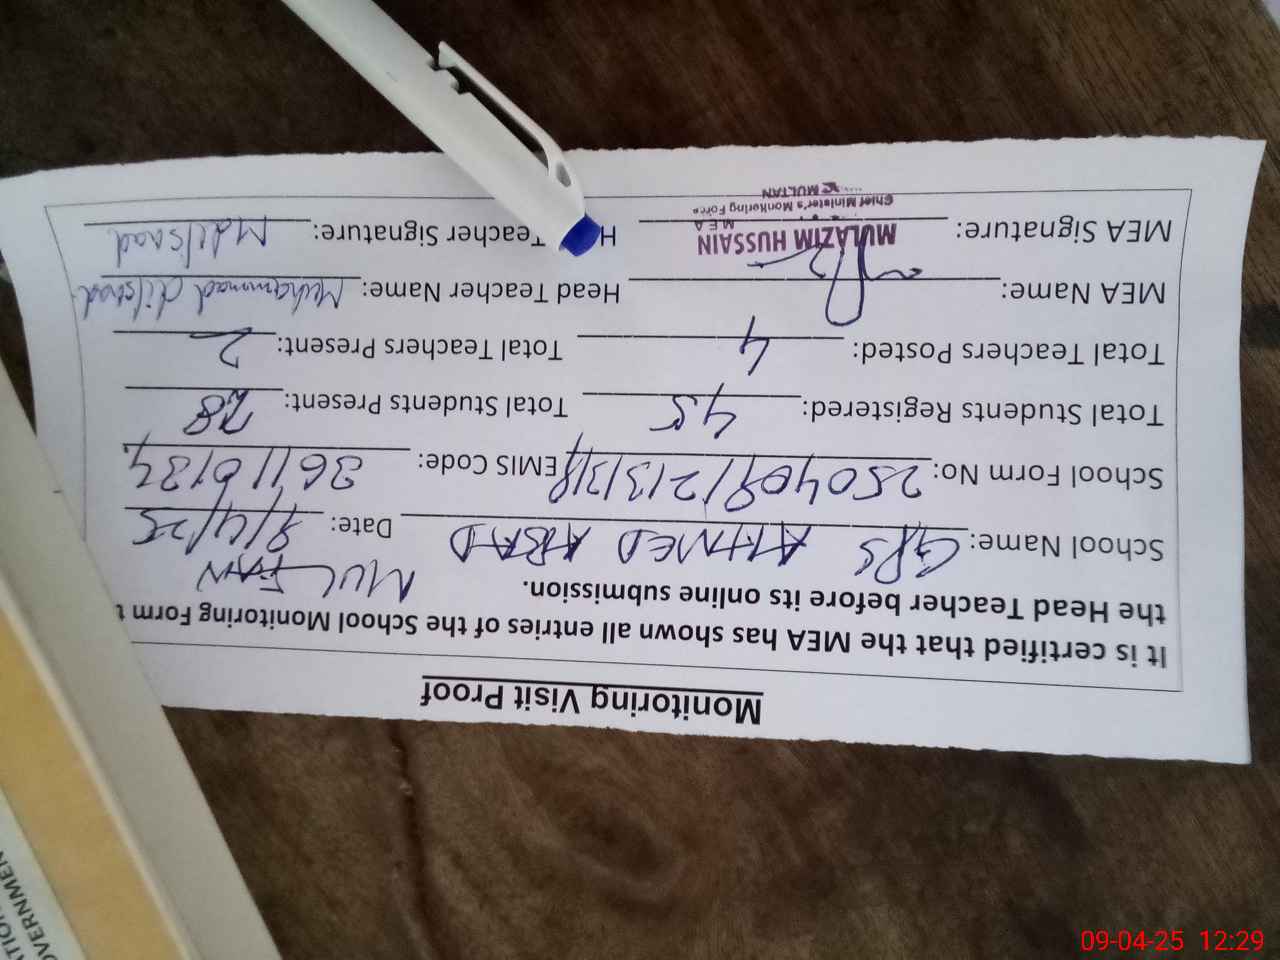 Monitoring Visit Proof
It is certified that the MEA has shown all entries of the School Monitoring Form t
the Head Teacher before its online submission.
MULTAN
School Name: GPS AHMED ABAD Date: 9/4/25
School Form No: EMIS Code:
Total Students Registered: 45 Total Students Present: 28
Total Teachers Posted: 4 Total Teachers Present: 2
MEA Name: Head Teacher Name: Muhammad dilshad
MEA Signature: H Teacher Signature: Mdilshad
MULAZIM HUSSAIN
M E A
Chief Minister's Monitoring Force
MULTAN
OVERNMEN
09-04-25 12:29